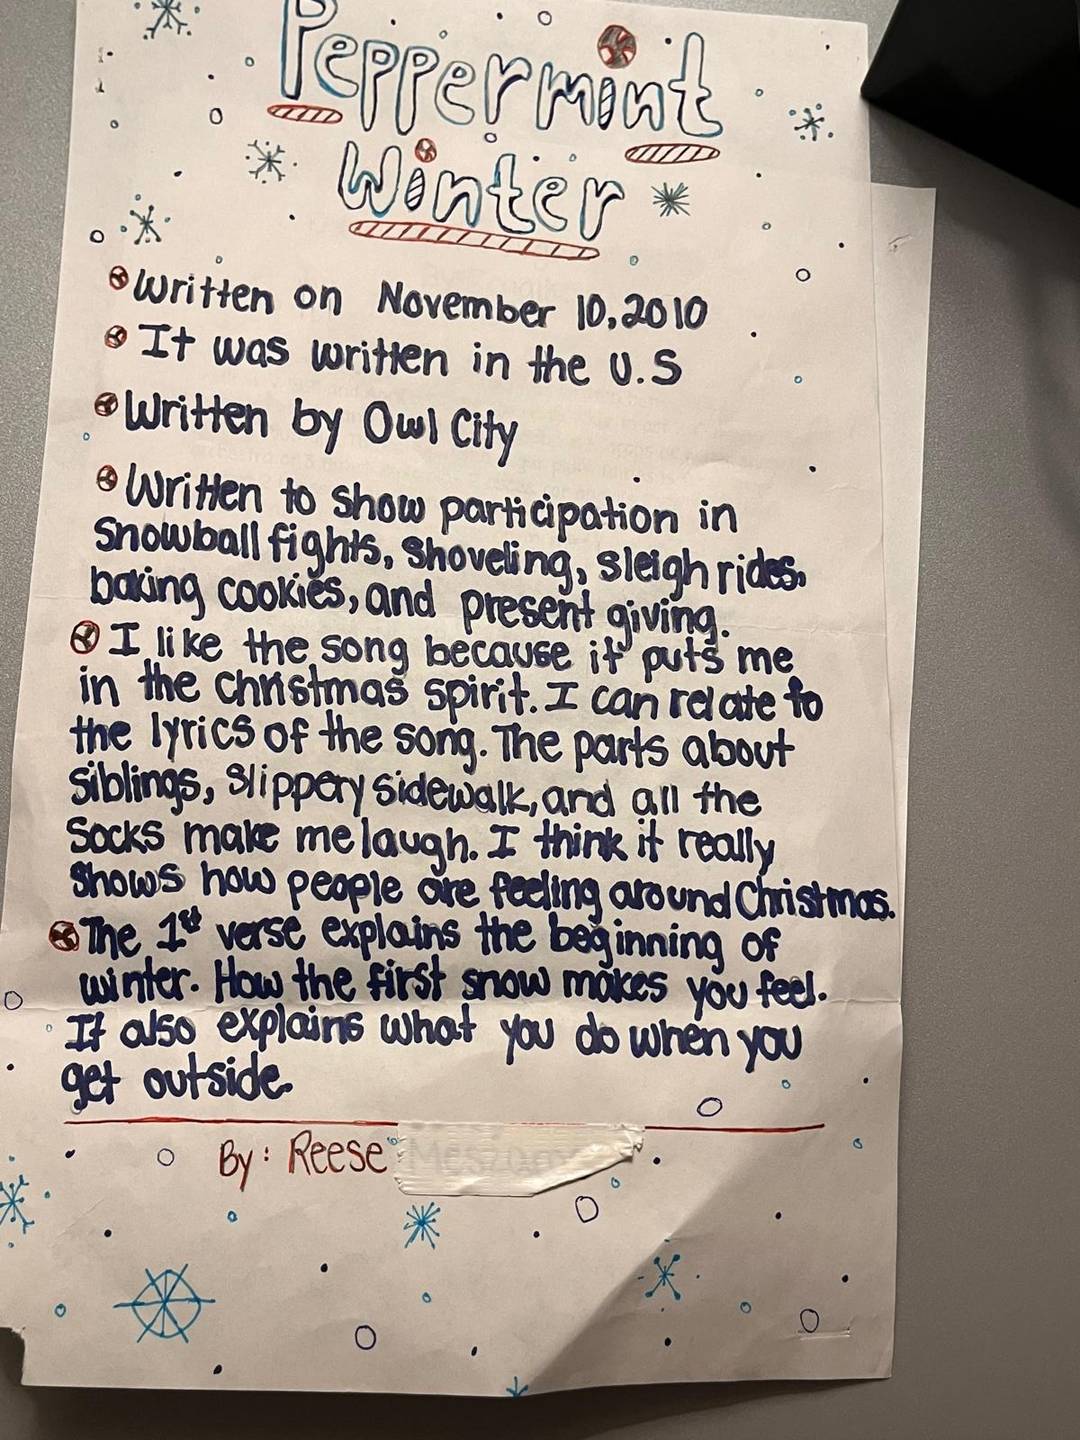 Peppermint
Winter
Written on November 10, 2010
It was written in the U.S
Written by Owl City
Written to show participation in
snowball fights, shoveling, sleigh rides,
baking cookies, and present giving.
I like the song because it puts me
in the christmas spirit. I can relate to
the lyrics of the song. The parts about
siblings, slippery sidewalk, and all the
socks make me laugh. I think it really
shows how people are feeling around Christmas.
The 1st verse explains the beginning of
winter. How the first snow makes you feel.
It also explains what you do when you
get outside.
By: Reese